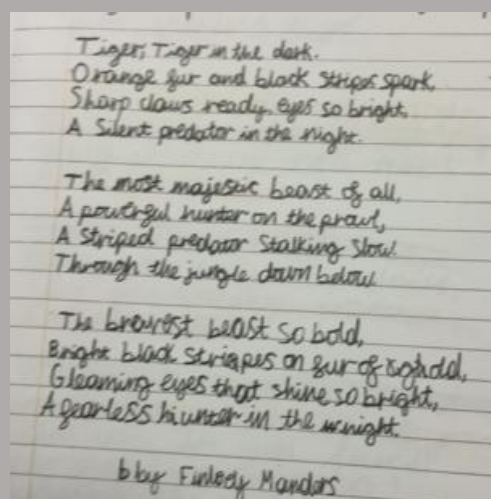 Tiger, Tiger in the dark.
Orange fur and black stripes spark,
Sharp claws ready, eyes so bright,
A silent predator in the night.
The most majestic beast of all,
A powerful hunter on the prowl,
A striped predator stalking slow
Through the jungle down below
The bravest beast so bold,
Bright black stripes on fur of gold,
Gleaming eyes that shine so bright,
A fearless hunter in the night.
by Manders